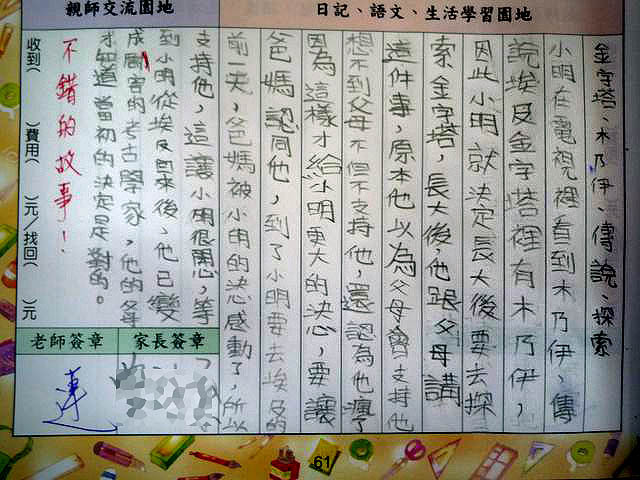 日記、語文、生活學習園地
金字塔、木乃伊、傳說、探索
小明在電視裡看到木乃伊，傳
說埃及金字塔裡有木乃伊，
因此小明就決定長大後要去探
索金字塔，長大後，他跟父母講
這件事，原本他以為父母會支持他
想不到父母不但不支持他，還認為他瘋了
因為這樣才給小明更大的決心，要讓
爸媽認同他，到了小明要去埃及的
前一天，爸媽被小明的決心感動了，所以
支持他，這讓小明很開心，等
到小明從埃及回來後，他已變
成厲害的考古學家，他的爸
才知道當初的決定是對的。
親師交流園地
不錯的故事！
收到（ ）費用（ ）元，找回（ ）元
家長簽章
老師簽章
61